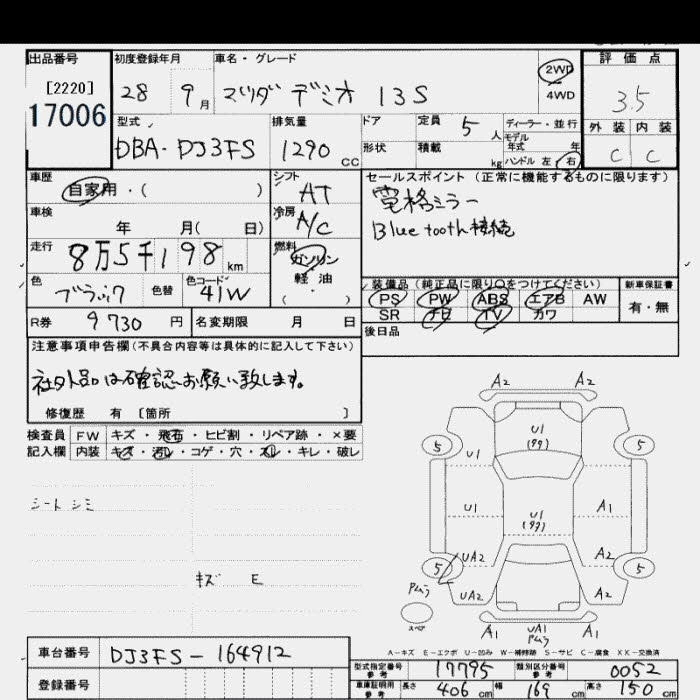 出品番号 初度登録年月 車名・グレード 2WD 4WD 評価点
[2220] 17006 28 9月 マツダ デミオ 13S 3.5
型式 排気量 ドア 定員 5人 ディーラー・並行 外装 内装
モデル年式 年
DBA-DJ3FS 1290cc 形状 積載 kg ハンドル 左・右 C C
車歴 シフト セールスポイント (正常に機能するものに限ります)
自家用・( ) AT 電格ミラー
車検 冷房 Bluetooth接続
年 月( 日) A/C
走行 8万5千198km 燃料 ガソリン
軽・油
( ・ )
色 ブラック 色替 色コード 41W 装備品(純正品に限り○をつけてください) 新車保証書
PS PW ABS エアB AW 有・無
R券 9730円 名変期限 月 日 SR ナビ TV カワ
注意事項申告欄(不具合内容等は具体的に記入して下さい) 後日品
社外品は確認お願い致します。
修復歴 有 [箇所 ]
検査員 FW キズ・飛石・ヒビ割・リペア跡・×要
記入欄 内装 キズ・汚レ・コゲ・穴・スレ・キレ・破レ
シートシミ
キズ E
A2 A2
U1
(99)
5 5
U1
U1 U1 A1
(99)
UA2 A2
5 5
UA2 A2
スペア
A1 UA1 A1
A-キズ E-エクボ U-凹み W-補修跡 S-サビ C-腐食 XX-交換済
車台番号 DJ3FS-164912
型式指定番号 参考 17795 類別区分番号 参考 0052
登録番号
車庫証明用 参考 長さ 406cm 幅 169cm 高さ 150cm